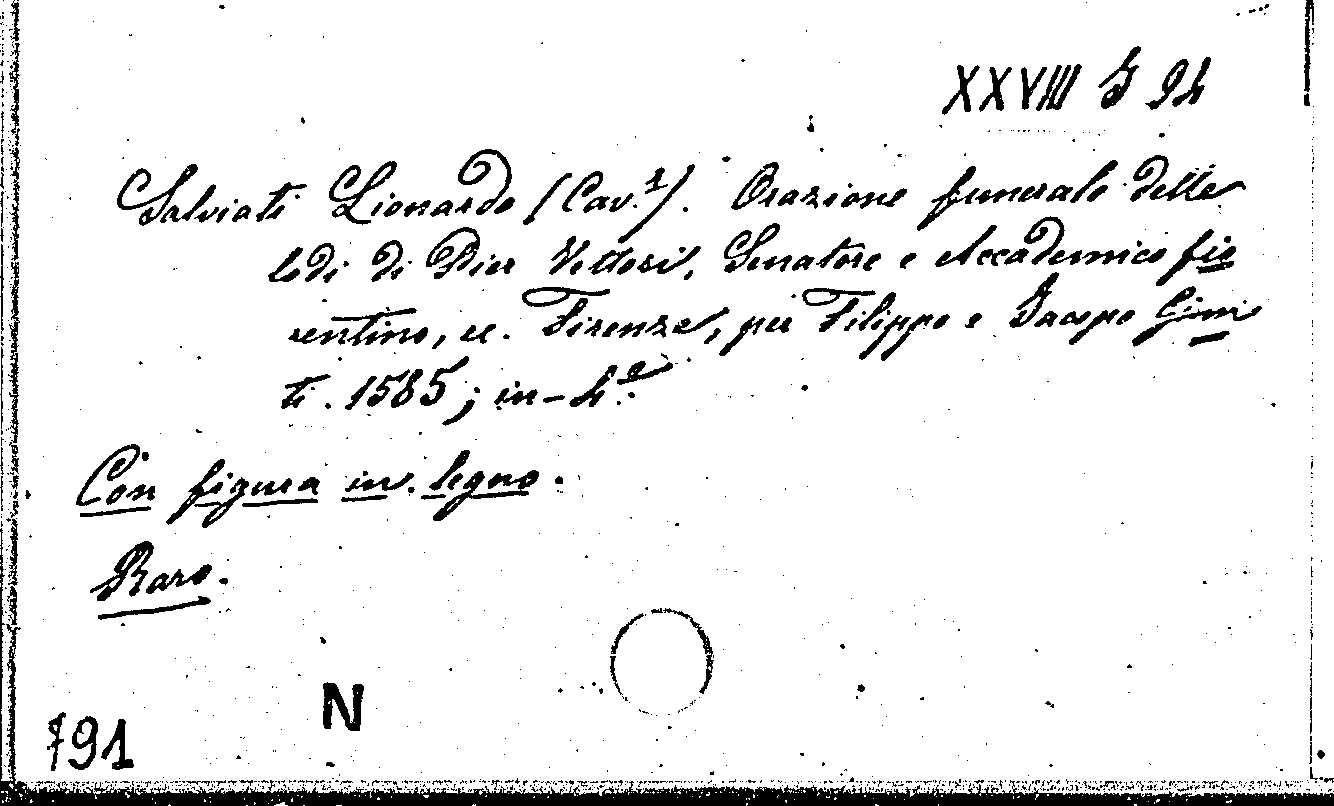 XXVIII J 94
Salviati Lionardo (Cav.r). Orazione funerale delle
lodi di Pier Vettori, Senatore e Accademico fio
rentino, ec. Firenze, per Filippo e Jacopo Giun
ti. 1585; in-4.º
Con figura in legno.
Raro.
N
791